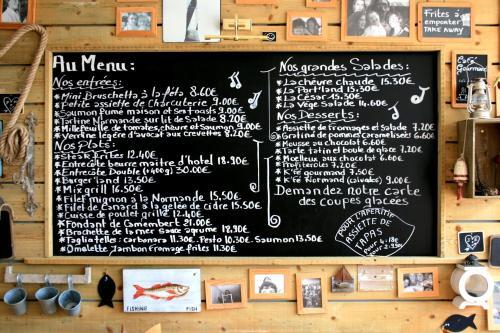 Au Menu:
Nos entrées:
*Mini Bruschetta à la féta 8.60€
*Petite assiette de Charcuterie 9.00€
*Saumon fumé maison et ses toasts 9.00€
*Tatine Normande sur lit de Salade 8.20€
*Millefeuille de tomates, chèvre et Saumon 9.00€
*Verrine légère d'avocat aux crevettes 8.20€
Nos Plats:
*Steak frites 12.40€
*Entrecôte beurre maître d'hotel 18.90€
*Entrecôte Double (+400g) 30.00€
*Burger'land 13.50€
*Mix grill 16.50€
*Filet mignon à la Normande 15.50€
*Filet de Canard à la gelée de cidre 15.50€
*Cuisse de poulet grillé 12.40€
*Fondant de Camembert 21.00€
*Brochette de la mer sauce agrume 18.90€
*Tagliatelles: carbonara 11.30€. Pesto 10.30€. Saumon 13.50€
*Omelette Jambon fromage frites 11.30€
Nos grandes Salades:
*La chèvre chaude 15.30€
*La Part'land 15.50€
*La César 15.50€
*La Végé Salade 14.60€
Nos Desserts:
*Assiette de fromages et salade 7.20€
*Gratiné de pommes caramélisées 6.60€
*Mousse au chocolat 6.60€
*Tarte tatin et boule de glace 7.20€
*Moelleux au chocolat 6.60€
*Profiteroles 7.20€
*K'ré gourmand 7.50€
*K'ré Normand (calvados) 9.00€
Demandez notre carte
des coupes glacées
POUR L'APERITIF
ASSIETTE DE
TAPAS
Frites
à emporter
TAKE AWAY
Café
Gourmand
FISHING
FISH